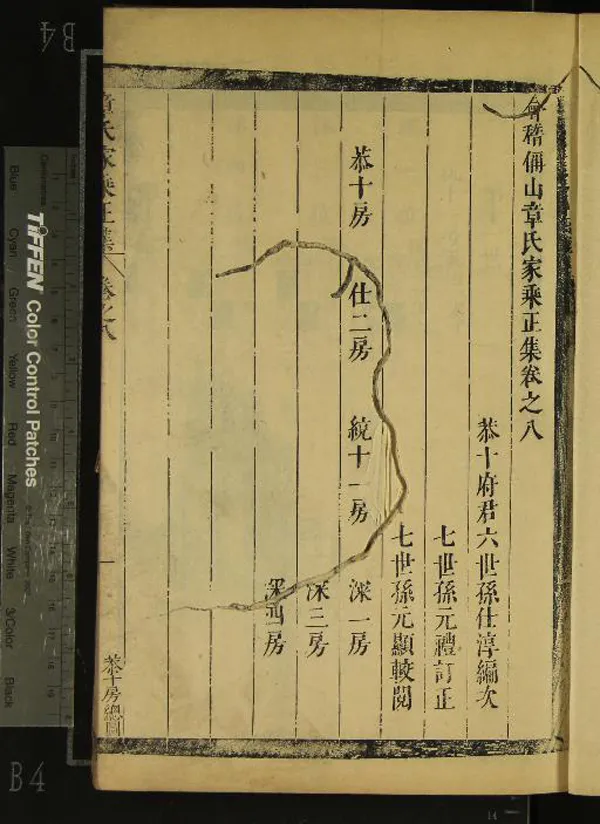 會稽偁山章氏家乘正集卷之八
恭十府君六世孫仕淳編次
七世孫元禮訂正
七世孫元顯較閱
恭十房 仕二房 統十一房 深一房
深三房
深四房
章氏家乘正集 卷之八
恭十房總圖
B4
B4
TIFFEN Color Control Patches
Blue Cyan Green Yellow Red Magenta White 3/Color Black